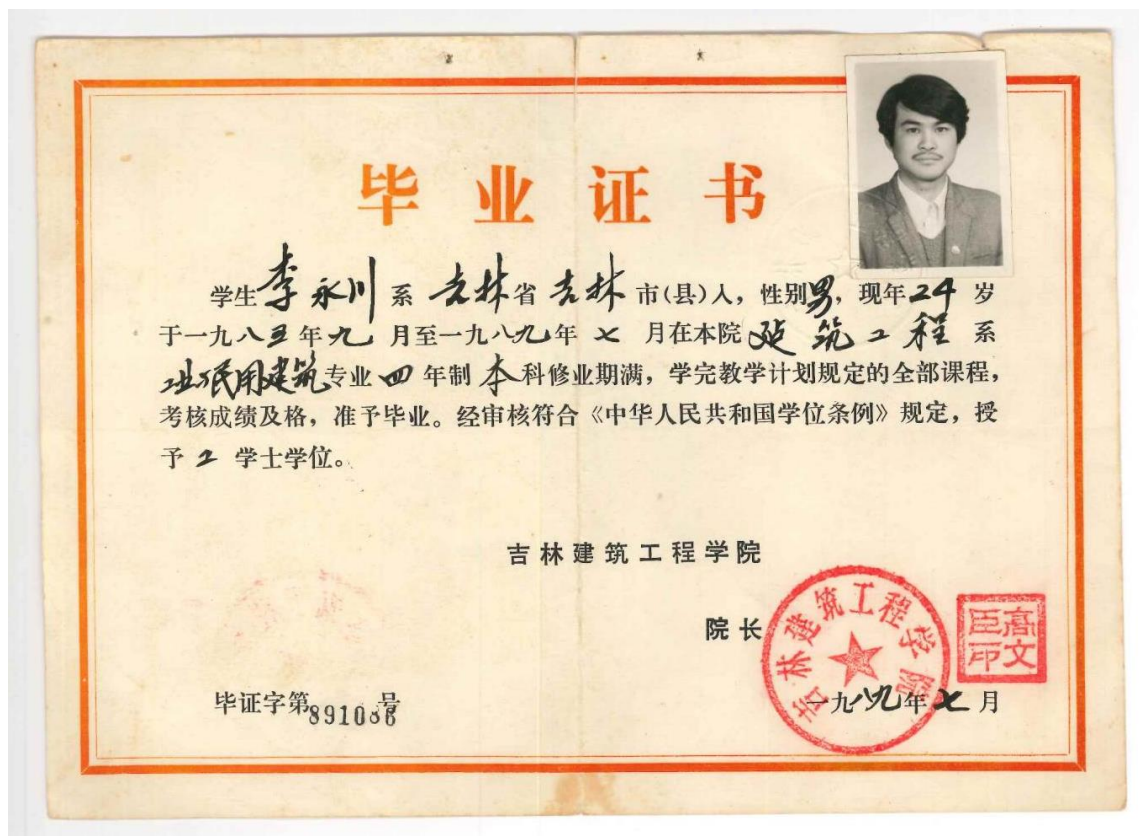 毕业证书
学生李永川系吉林省吉林市(县)人，性别男，现年24岁
于一九八五年九月至一九八九年七月在本院建筑工程系
工业民用建筑专业四年制本科修业期满，学完教学计划规定的全部课程，
考核成绩及格，准予毕业。经审核符合《中华人民共和国学位条例》规定，授
予工学士学位。
吉林建筑工程学院
院长
吉林建筑工程学院
高文臣印
一九八九年七月
毕证字第891086号